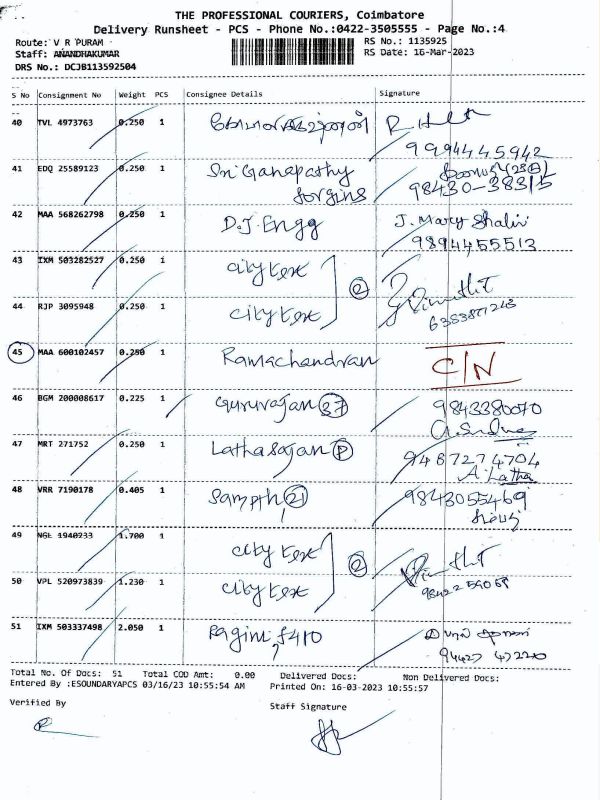 THE PROFESSIONAL COURIERS, Coimbatore
Delivery Runsheet - PCS - Phone No.:0422-3505555 - Page No.:4
Route: V R PURAM RS No.: 1135925
Staff: ANANDHAKUMAR RS Date: 16-Mar-2023
DRS No.: DCJB113592504
S No Consignment No Weight PCS Consignee Details Signature
40 TVL 4973763 0.250 1
9994445942
41 EDQ 25589123 0.250 1 Sri Ganapathy
forgins 98430-38315
42 MAA 568262798 0.250 1 D.J. Engg J. Mary Shalini
9894455513
43 IXM 503282527 0.250 1 city text
②
44 RJP 3095948 0.250 1 city text
45 MAA 600102457 0.250 1 Ramachandran C/N
46 BGM 200008617 0.225 1 Gururajan 37 9843380070
47 MRT 271752 0.250 1 Latha Sajan P 9487274704
A. Latha
48 VRR 7190178 0.405 1 Sampth 21 9843055469
49 NGL 1940233 1.700 1 city text
②
50 VPL 520973839 1.230 1 city text
51 IXM 503337498 2.050 1 Ragini, f410
94427 47220
Total No. Of Docs: 51 Total COD Amt: 0.00 Delivered Docs: Non Delivered Docs:
Entered By :ESOUNDARYAPCS 03/16/23 10:55:54 AM Printed On: 16-03-2023 10:55:57
Verified By Staff Signature